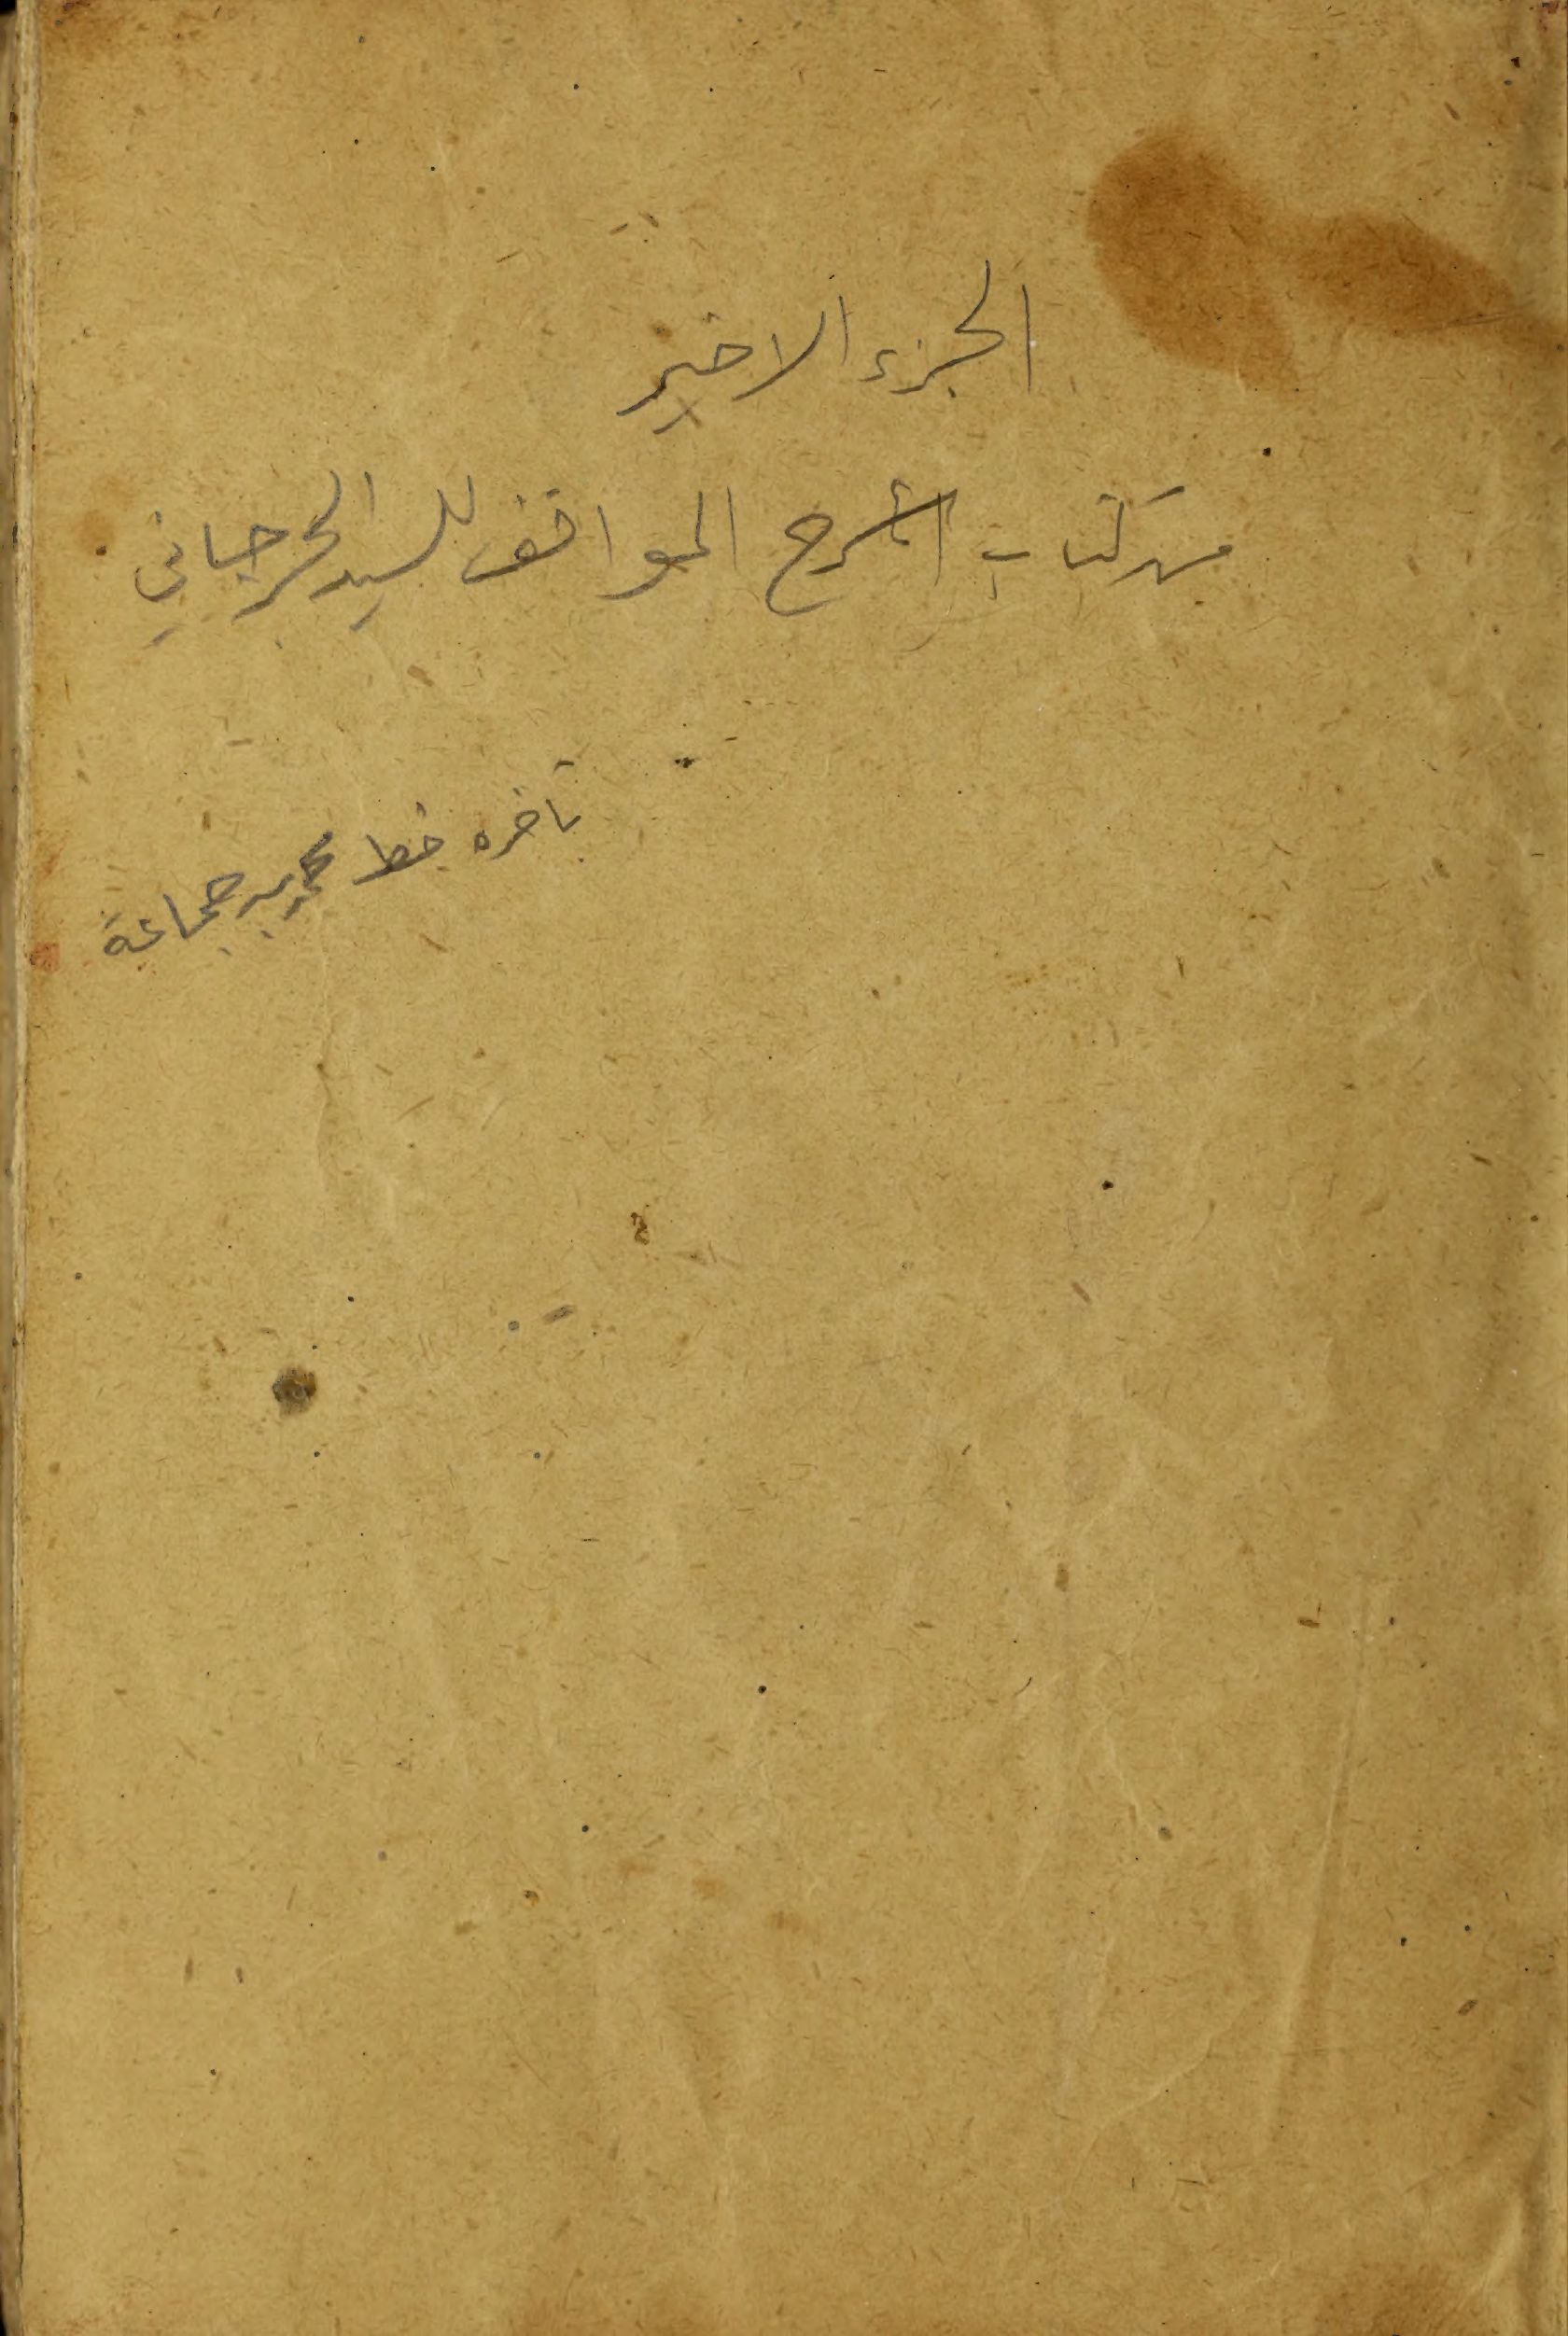 الجزء الاخير
من كتاب شرح المواقف للسيد الجرجاني
بآخره خط محمد بن جماعة